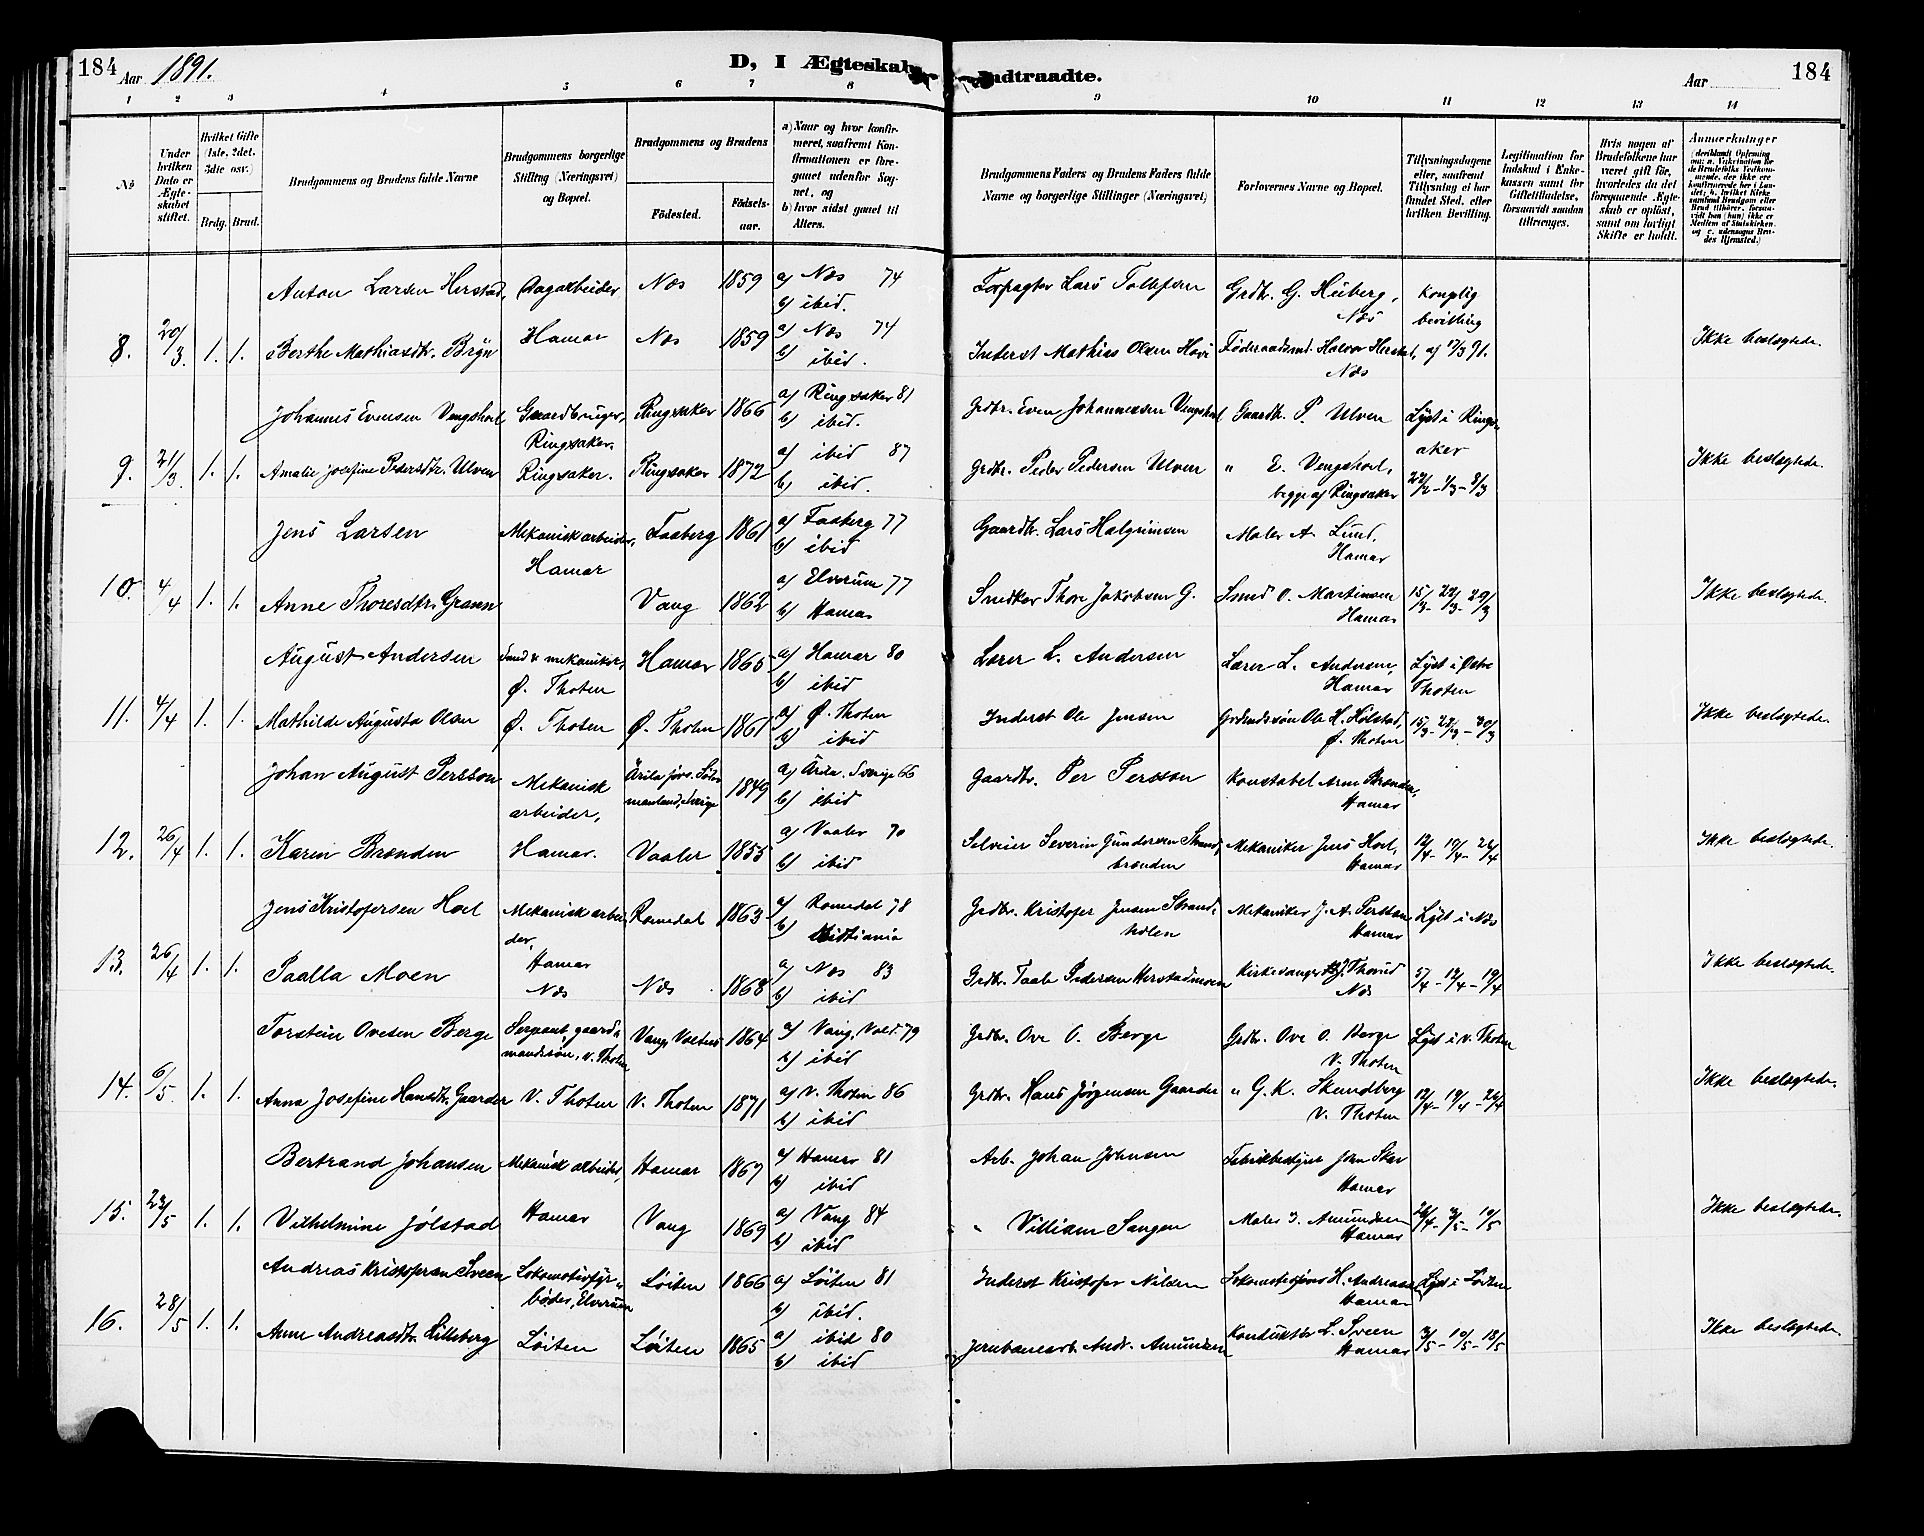 184 Aar 1891. D, I Ægteskab Indtraadte. Aar 184
1 2 3 4 5 6 7 8 9 10 11 12 13 14
No
Under hvilken Dato er Ægteskabet stiftet.
Hvilket Gifte (1ste, 2det, 3die osv.)
Brdg. Brud.
Brudgommens og Brudens fulde Navne
Brudgommens borgerlige Stilling (Næringsvei) og Bopæl.
Brudgommens og Brudens
Fødested. Fødsels-aar.
a) Naar og hvor konfirmeret, saafremt Konfirmationen er foregaaet udenfor Sognet, og
b) hvor sidst gaaet til Alters.
Brudgommens Faders og Brudens Faders fulde Navne og borgerlige Stillinger (Næringsvei)
Forlovernes Navne og Bopæl.
Tillysningsdagene eller, saafremt Tillysning ei har fundet Sted, efter hvilken Bevilling.
Legitimation for Indskud i Enkekassen samt for Giftetilladelse, forsaavidt saadan tiltrænges.
Hvis nogen af Brudefolkene har været gift før, hvorledes da det foregaaende Ægteskab er opløst, samt om lovligt Skifte er holdt.
Anmerkninger
Anton Larsen Herstad, Dagarbeider Næs 1859 a) Næs 74 Forpagter Lars Tollefsen Grdbr. G. Huberg, Næs Konglig bevilling
b) ibid.
8. 20/3. 1. 1. Berthe Mathiasdtr. Bryn Hamar Næs 1859 a) Næs 74 Inderst Mathias Olsen Hovi Føderaadsmd. Halvor Herstad, Næs af 17/3 91. Ikke beslægtede.
b) ibid.
Johannes Evensen Vengshoel Gaardbruger, Ringsaker. Ringsaker 1866 a) Ringsaker 81 Grdbr. Even Johannessen Vengshoel Gaardbr. P. Ulven Lyst i Ringsaker
b) ibid.
9. 21/3. 1. 1. Amalie Josefine Pedersdtr. Ulven Ringsaker. Ringsaker 1872 a) ibid 87 Grdbr. Peder Pedersen Ulven " E. Vengshoel, begge af Ringsaker 22/2 - 1/3 - 8/3 Ikke beslægtede.
b) ibid.
Jens Larsen Mekanisk arbeider, Hamar Faaberg 1861 a) Faaberg 77 Gaardbr. Lars Halgrimsen Maler A. Lund, Hamar
b) ibid
10. 4/4 1. 1. Anne Thoresdtr. Grann Vang 1862 a) Elverum 77 Snedker Thore Jakobsen G. Smed O. Martinsen Hamar 15/3 - 22/3 - 29/3 Ikke beslægtede.
b) Hamar
August Andersen Smed & mekaniker, Ø. Thoten Hamar 1865 a) Hamar 80 Lærer L. Andersen Lærer L. Andersen, Hamar Lyst i Østre Thoten
b) ibid
11. 4/4 1. 1. Mathilde Augusta Olsen Ø. Thoten Ø. Thoten 1861 a) Ø. Thoten Inderst Ole Jensen Grdmdssøn Ole H. Hølstad, Ø. Thoten 15/3 - 22/3 - 30/3 Ikke beslægtede.
b) ibid
Johan August Persson Mekanisk arbeider, Ärila prvs. Södermanland, Sverige 1849 a) Ärila. Sverige 66 Gaardbr. Per Persson Konstabel Arne Brænden, Hamar
b) ibid
12. 26/4 1. 1. Karen Brænden Hamar. Vaaler 1855 a) Vaaler 70 Selveier Severin Gundersen Strandbrænden Mekaniker Jens Hoel, Hamar 12/4 - 19/4 - 26/4 Ikke beslægtede.
b) ibid
Jens Kristofersen Hoel Mekanisk arbeider, Hamar Romedal 1863 a) Romedal 78 Grdbr. Kristofer Jensen Strand Mekaniker J. A. Persson Hamar Lyst i Næs
b) Kristiania
13. 26/4 1. 1. Paalla Moen Næs Næs 1868 a) Næs 83 Grdbr. Paal Pedersen Herstadmoen Kirkesanger Thorud Næs 5/4 - 12/4 - 19/4 Ikke beslægtede.
b) ibid
Torstein Ovesen Berge Sergeant, gaardmandssøn, V. Thoten Vang, Valders 1864 a) Vang, Vald. 79 Grdbr. Ove O. Berge Grdbr. Ove O. Berge V. Thoten Lyst i V. Thoten
b) ibid
14. 6/5. 1. 1. Anna Josefine Hansdtr. Gaarder V. Thoten V. Thoten 1871 a) V. Thoten 86 Grdbr. Hans Jørgensen Gaarder " G. K. Skundberg V. Thoten 12/4 - 19/4 - 26/4 Ikke beslægtede.
b) ibid
Bertrand Johansen Mekanisk arbeider, Hamar 1867 a) Hamar 81 Arb. Johan Johnsen Fabrikbestyrer John Skar Hamar
b) ibid
15. 23/5 1. 1. Vilhelmine Jølstad Hamar Vang 1869 a) Vang 84 " Villiam Sangen Maler J. Amundsen Hamar 26/4 - 3/5 - 10/5 Ikke beslægtede.
b) ibid
Andreas Kristofersen Sveen Lokomotivfyrbøder, Elverum Løiten 1866 a) Løiten 81 Inderst Kristofer Nilsen H. Andreassen Hamar Lyst i Løiten
b) ibid.
16. 28/5 1. 1. Anne Andreasdtr. Lilleberg Løiten Løiten 1865 a) ibid 80 Jernbanearb. Andr. Amundsen Konduktør L. Sveen Hamar 3/5 - 10/5 - 18/5 Ikke beslægtede.
b) ibid